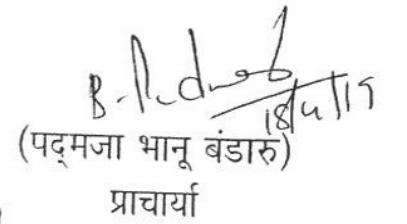 18/4/19
(पद्मजा भानू बंडारु)
प्राचार्या